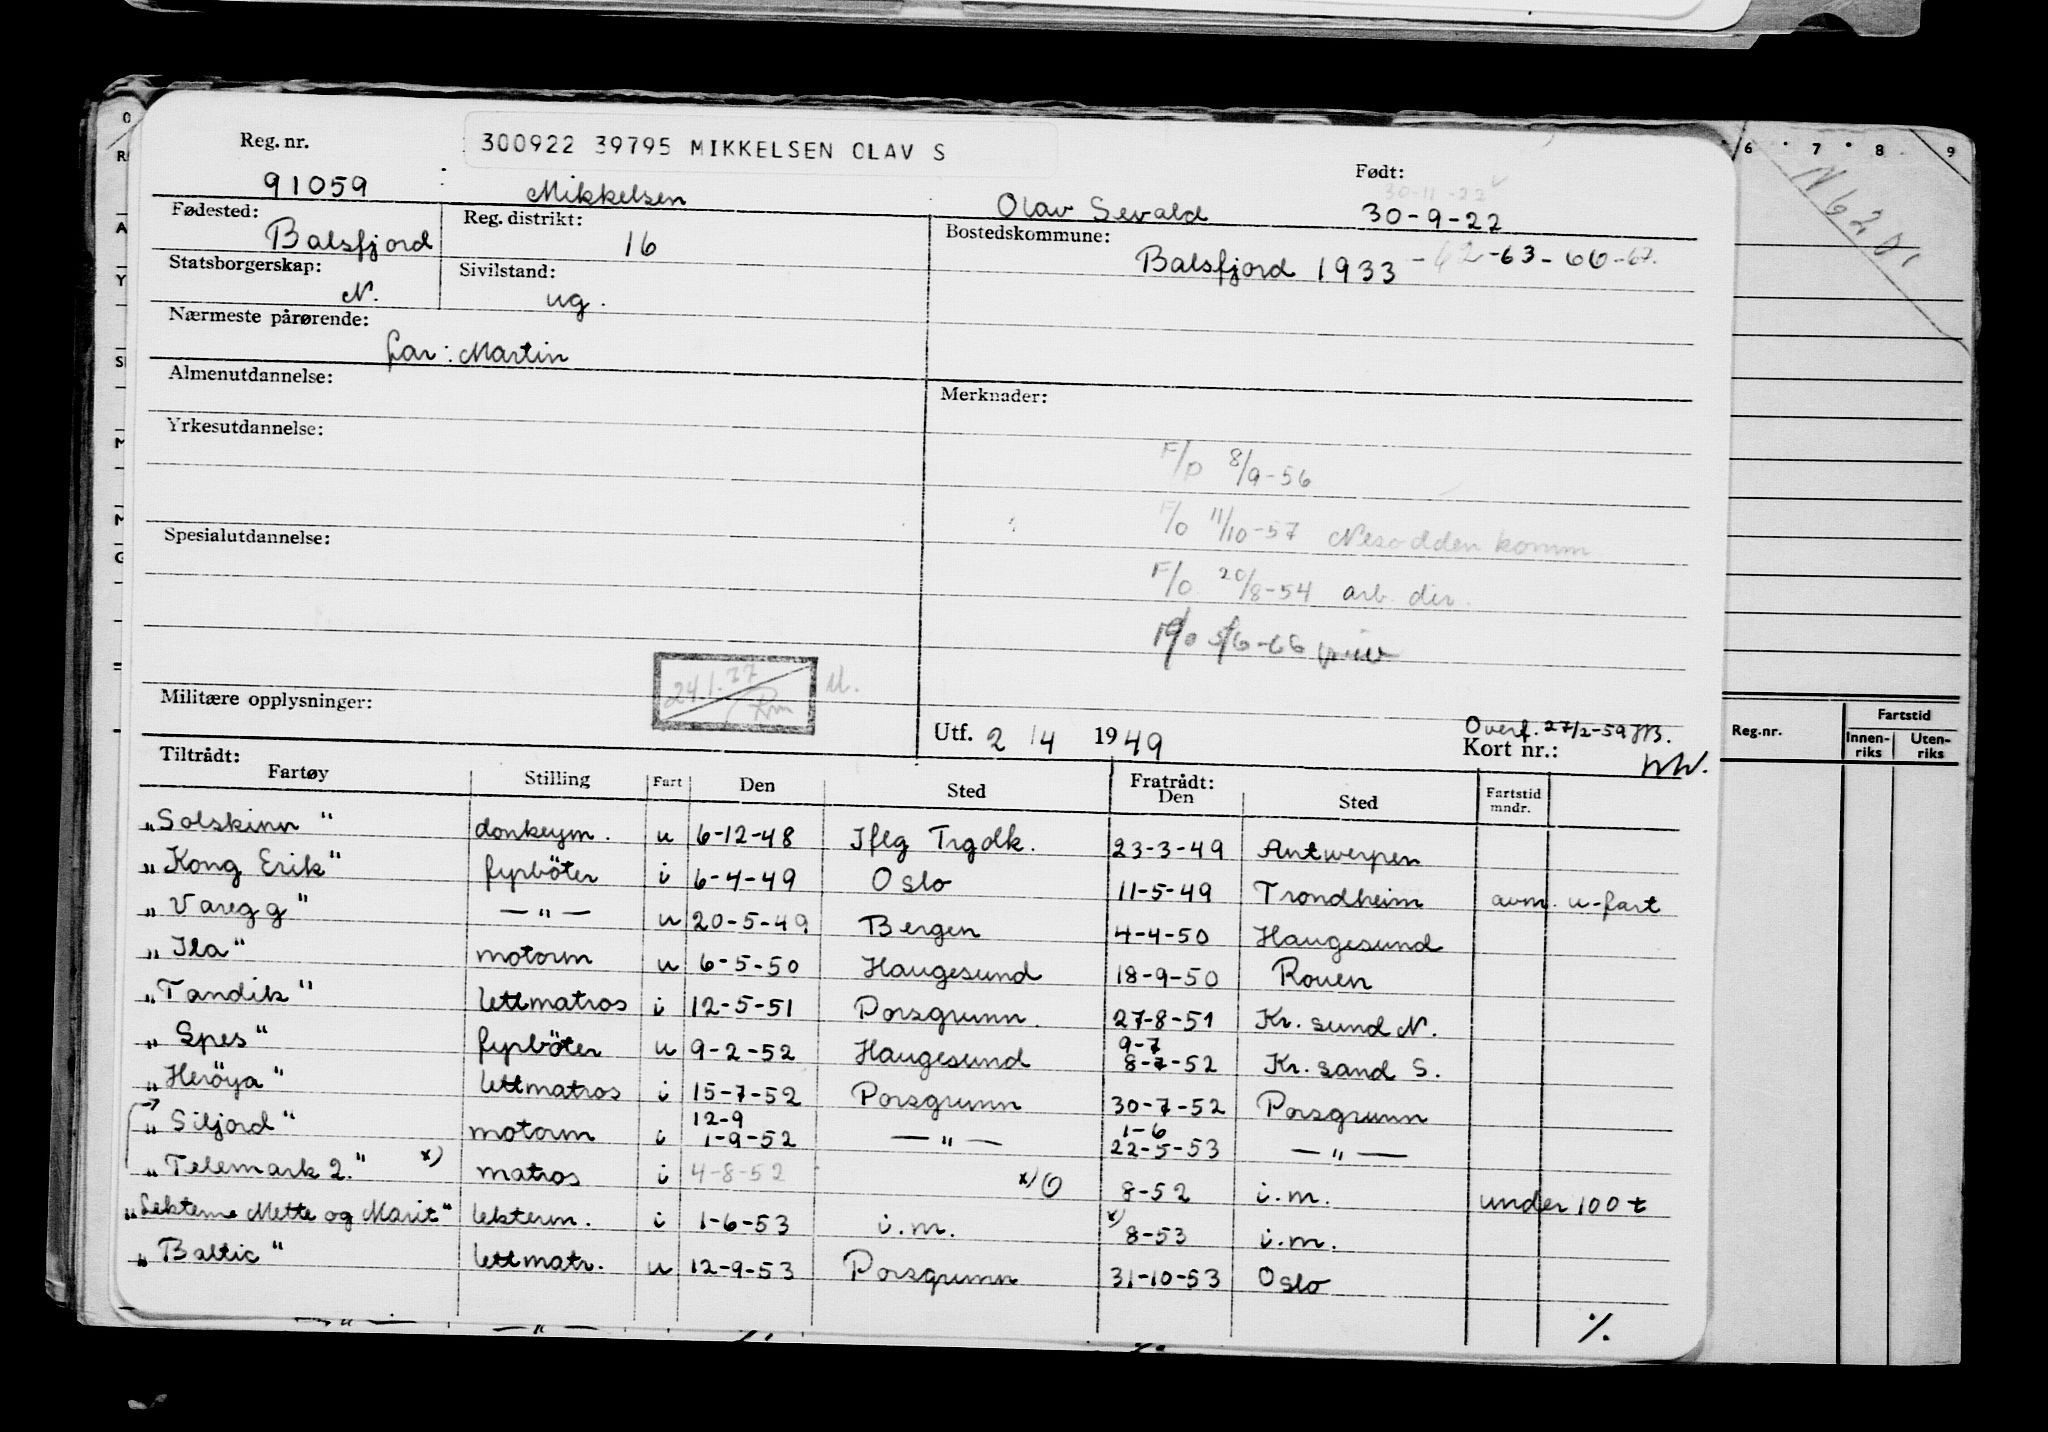 Reg. nr.
300922 39795 MIKKELSEN OLAV S
Født:
30-11-22
91059 Mikkelsen Olav Sevald 30-9-22
Fødested: Balsfjord
Reg. distrikt: 16
Bostedskommune: Balsfjord 1933 -62-63-66-67.
Statsborgerskap: N.
Sivilstand: ug.
Nærmeste pårørende: far: Martin
Almenutdannelse:
Merknader:
Yrkesutdannelse:
F/O 8/9-56
F/O 11/10-57 Nesodden komm
Spesialutdannelse:
F/O 20/8-54 arb. dir.
F/O 5/6-66
24.1.77
M.
Militære opplysninger:
Utf. 2/4 1949
Overf. 27/2-59
Kort nr.:
Tiltrådt: Fratrådt:
Fartøy Stilling Fart Den Sted Den Sted Fartstid mndr.
"Solskinn" donkeym. u 6-12-48 Iflg Trgdk. 23-3-49 Antwerpen
"Kong Erik" fyrböter i 6-4-49 Oslo 11-5-49 Trondheim avm. u-fart
"Varegg" —"— u 20-5-49 Bergen 4-4-50 Haugesund
"Ila" motorm u 6-5-50 Haugesund 18-9-50 Rouen
"Tandik" lettmatros i 12-5-51 Porsgrunn. 27-8-51 Kr. sund N.
9-7
"Spes" fyrböter u 9-2-52 Haugesund 8-7-52 Kr. sand S.
"Heröya" lettmatros i 15-7-52 Porsgrunn 30-7-52 Porsgrunn
12-9 1-6
"Siljord" motorm i 1-9-52 —"— 22-5-53 —"—
"Telemark 2." x) matros i 4-8-52 x) O 8-52 i.m. under 100 t
"Lekterne Mette og Marit" lekterm. i 1-6-53 i.m. x) 8-53 i.m.
"Baltic" lettmatr. u 12-9-53 Porsgrunn 31-10-53 Oslo
%
6 7 8 9
Reg.nr.
Fartstid
Innenriks Utenriks